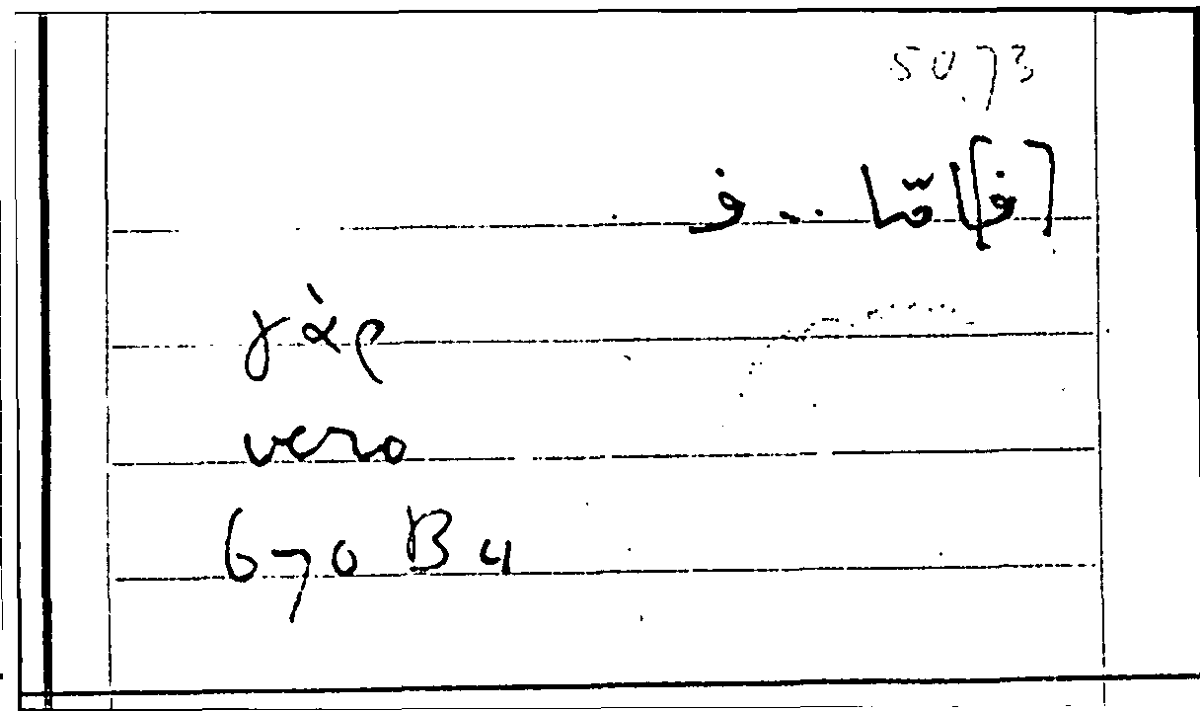 5073
[ف]امّا ... ف
γὰρ
vero
670 B 4